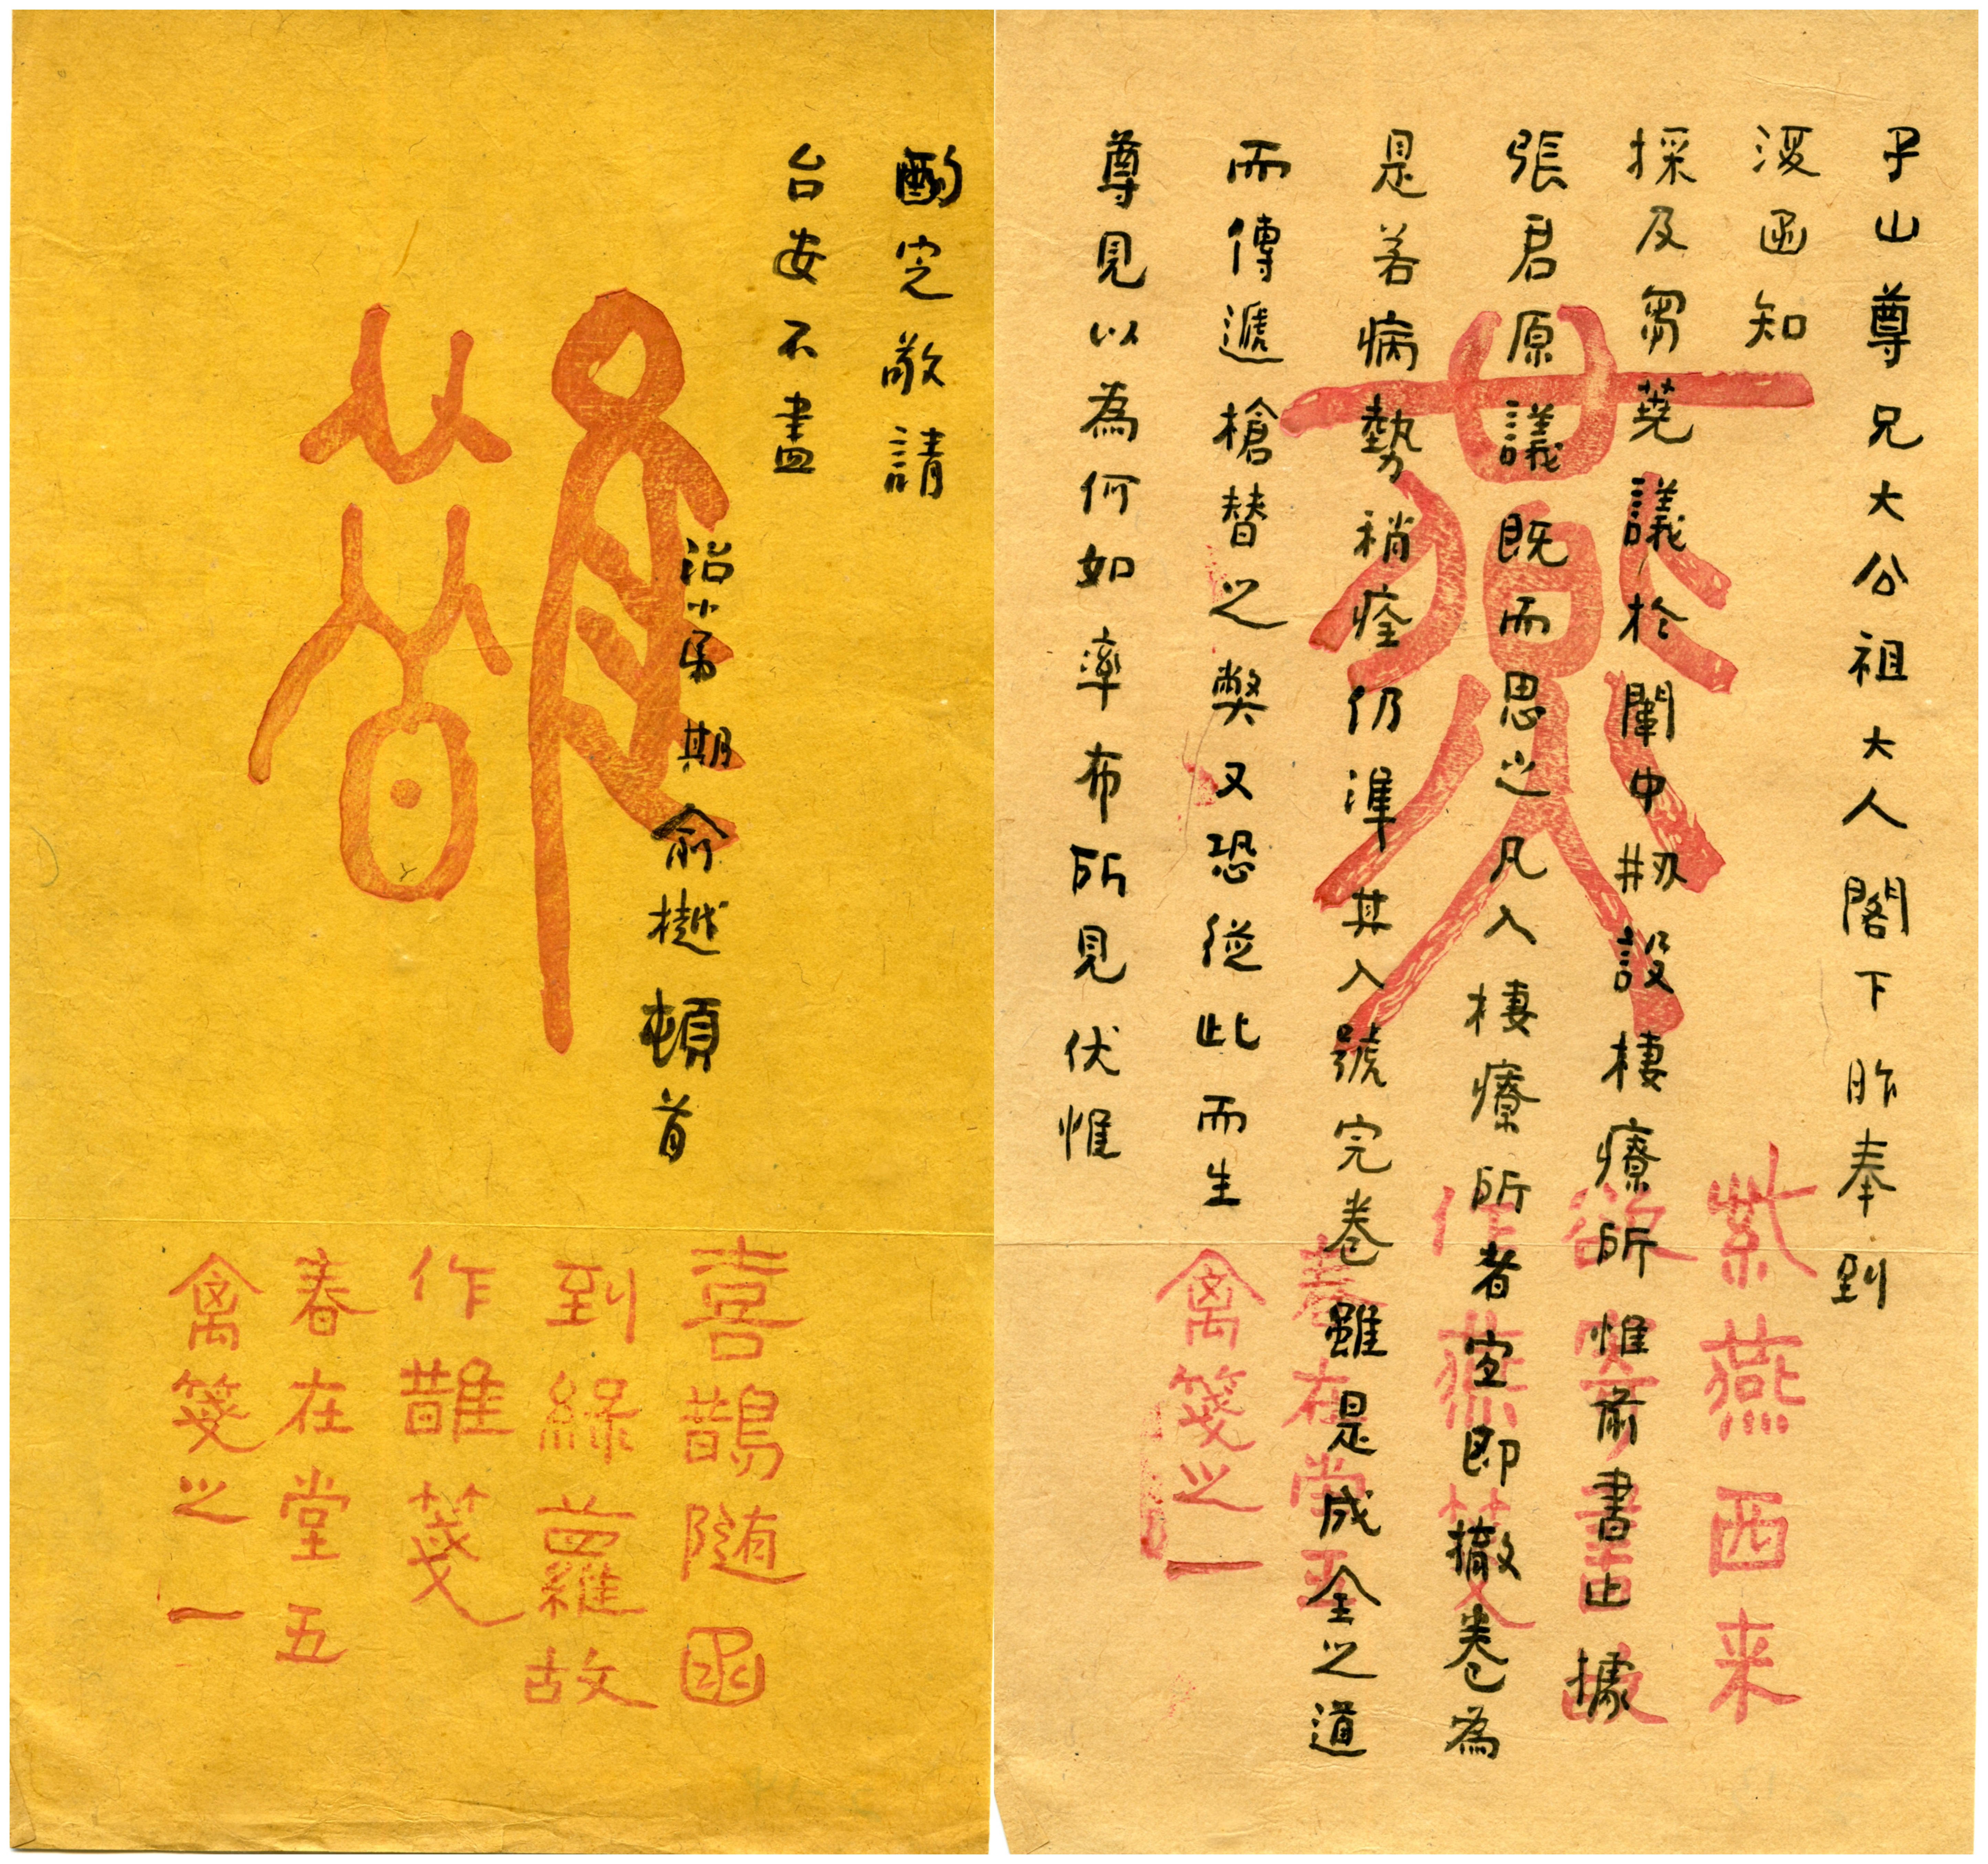 子山尊兄大公祖大人閣下昨奉到
復函知
採及芻蕘議於闈中刱設棲療所惟前書止據
張君原議既而思之凡入棲療所者宜即撤卷為
是若病勢稍痊仍準其入號完卷雖是成全之道
而傳遞槍替之弊又恐從此而生
尊見以為何如率布所見伏惟
酌定敬請
台安不盡
治小弟期俞樾頓首
燕
紫燕西来
欲寄書故
作燕箋
春在堂五
禽箋之一
鵲
喜鵲随函
到綠蘿故
作鵲箋
春在堂五
禽箋之一